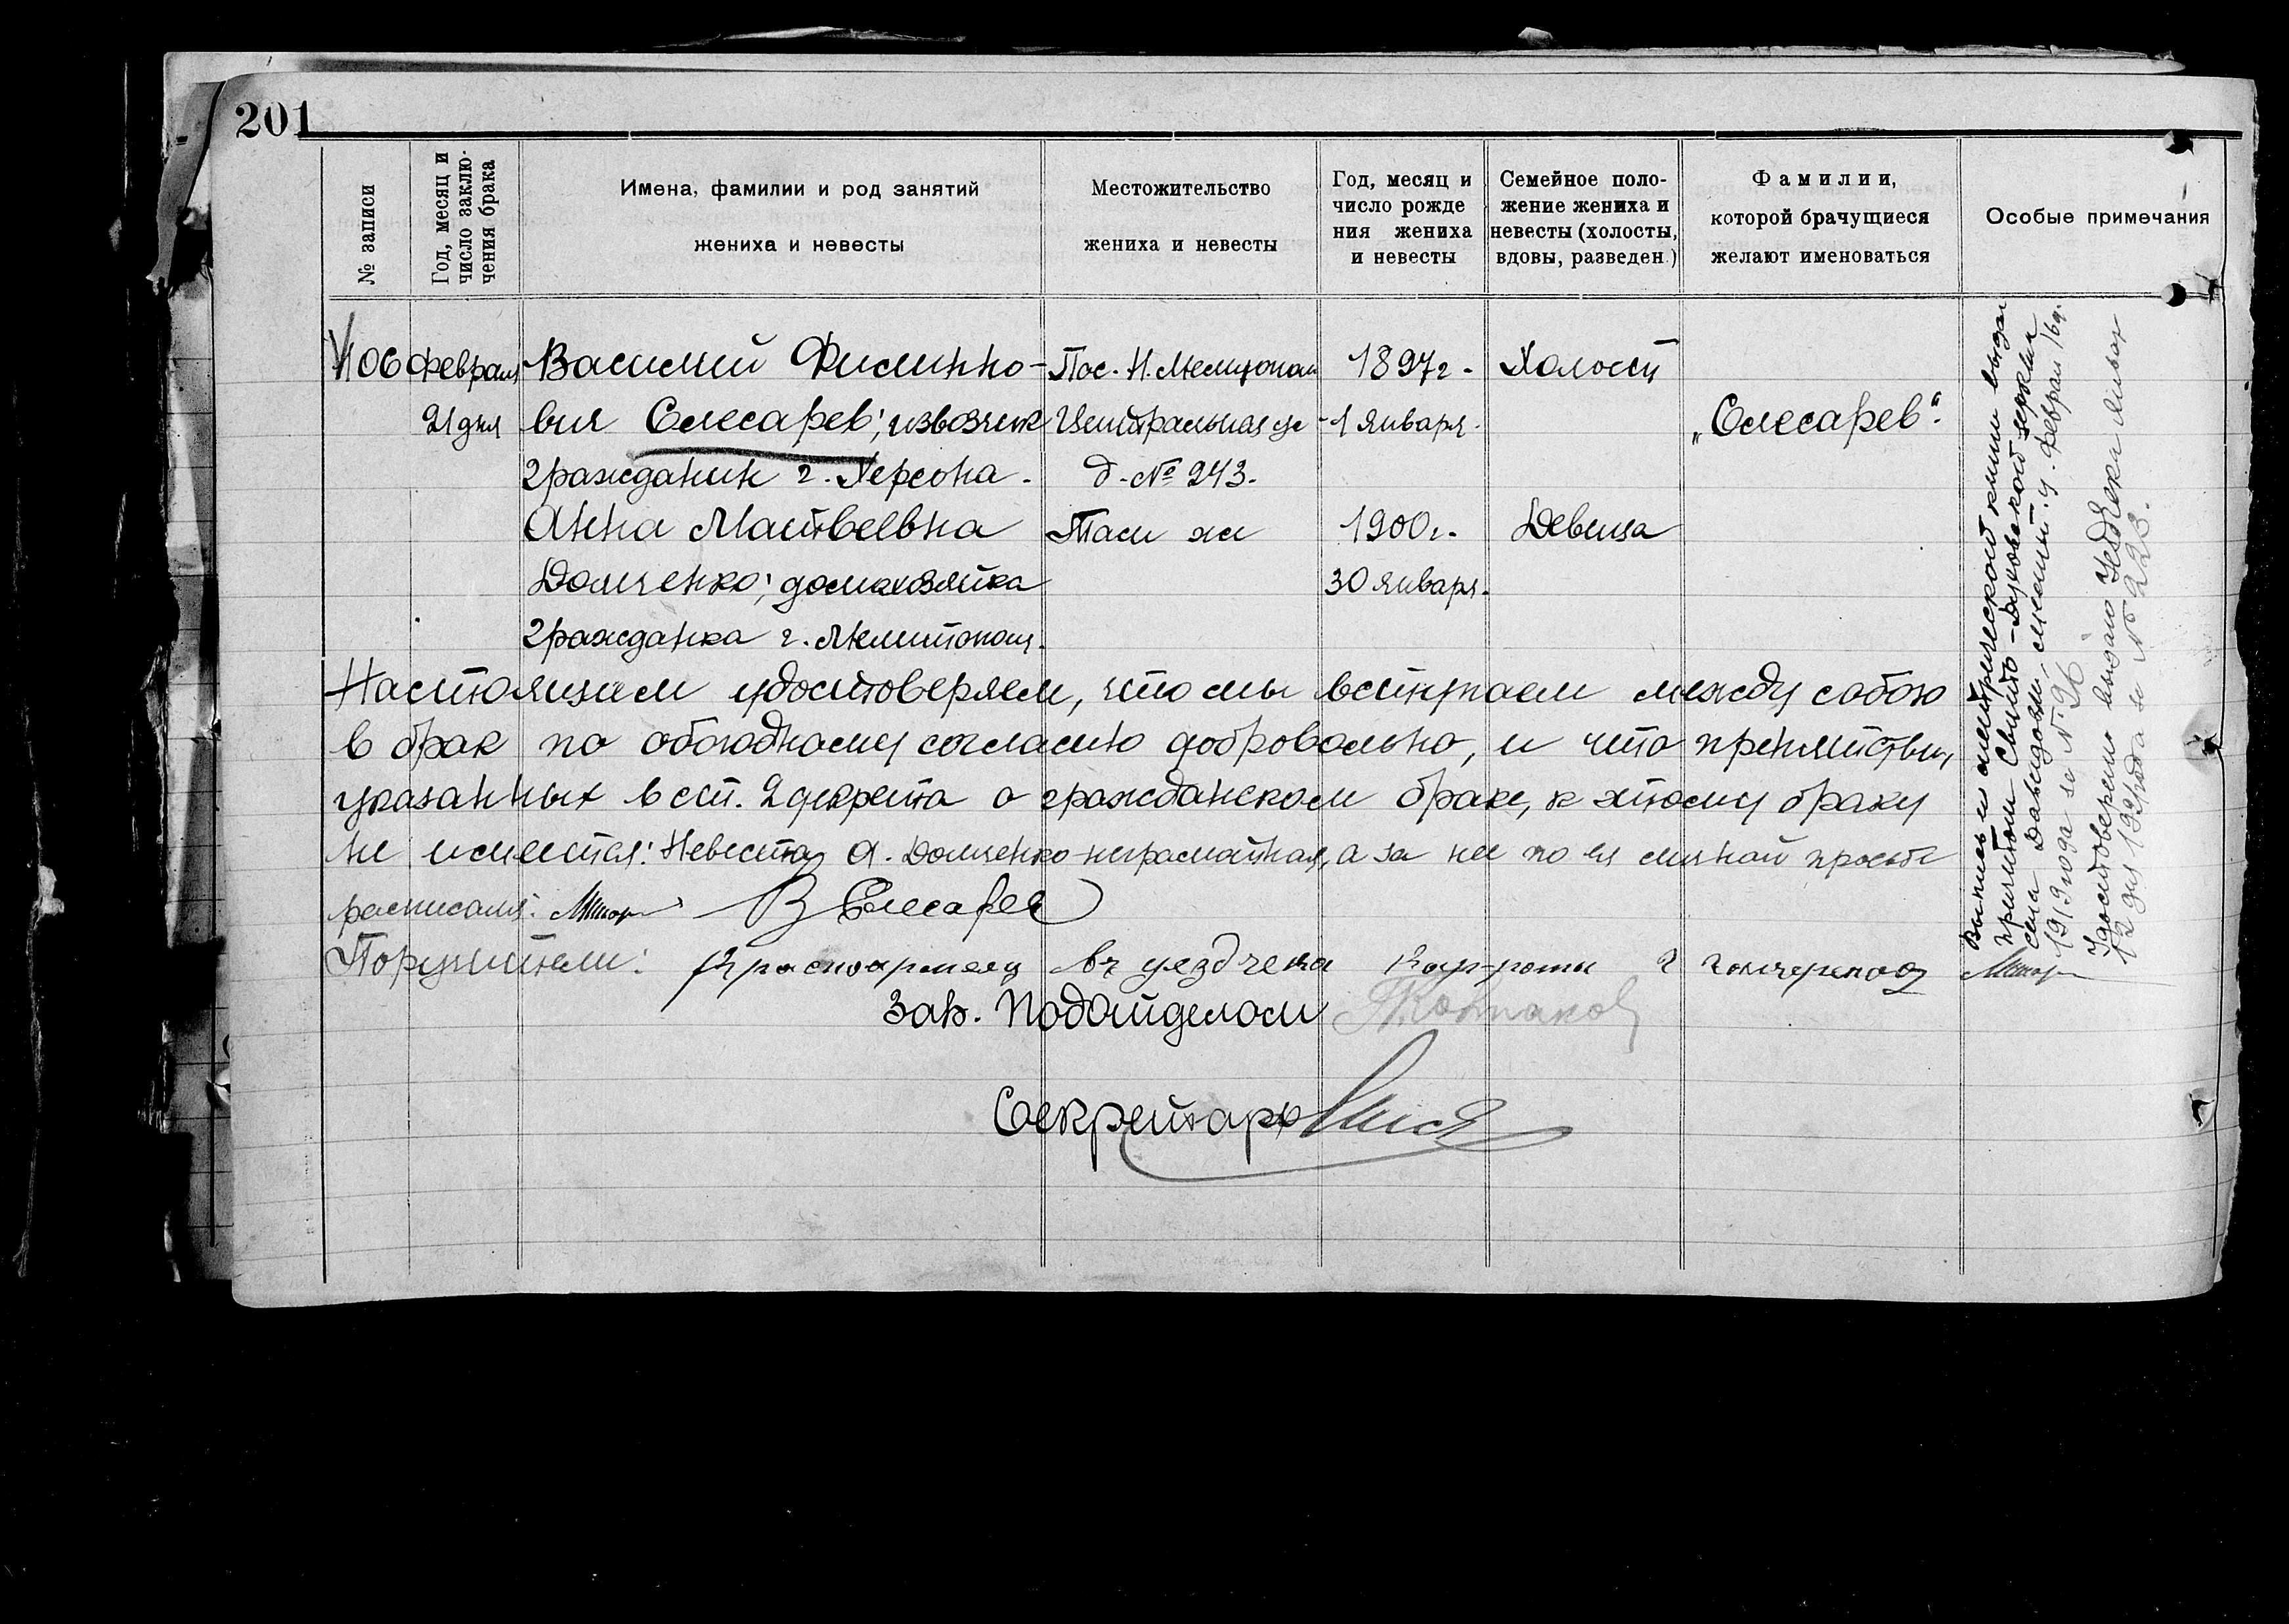 201
№ записи
Год, месяц и
число заклю-
чения брака
Имена, фамилии и род занятий
жениха и невесты
Местожительство
жениха и невесты
Год, месяц и
число рожде
ния жениха
и невесты
Семейное поло-
жение жениха и
невесты (холосты,
вдовы, разведен.)
Фамилии,
которой брачущиеся
желают именоваться
Особые примечания
106 Февраля Василий Филиппо- Пос. Н. Мелитополь 1897 г. Холост
21 дня вич Слесарев; извозчик Центральная ул 1 января. „Слесарев“.
гражданин г. Херсона. д. № 243.
Анна Матвеевна Там же 1900 г. Девица
Домченко; домахозяйка 30 января.
гражданка г. Мелитополя.
Настоящим удостоверяем, что мы вступаем между собою
в брак по обоюдному согласию добровольно, и что препятствий,
указанных в ст. 2 декрета о гражданском браке, к этому браку
не имеется: Невеста А. Домченко неграмотная, а за нее по ея личной просьбе
расписался: В Слесарев
Поручители: Красноармеец
Зав. Подотделом
Секретарь
Выпись из метрической книги выдан
причтом Свято-Духовской церкви
села Давыдовки, Мелит. у. Февраля 16 дн.
1919 года за № 26
Удостоверение выдано
12 дня 1921 года за № 223.